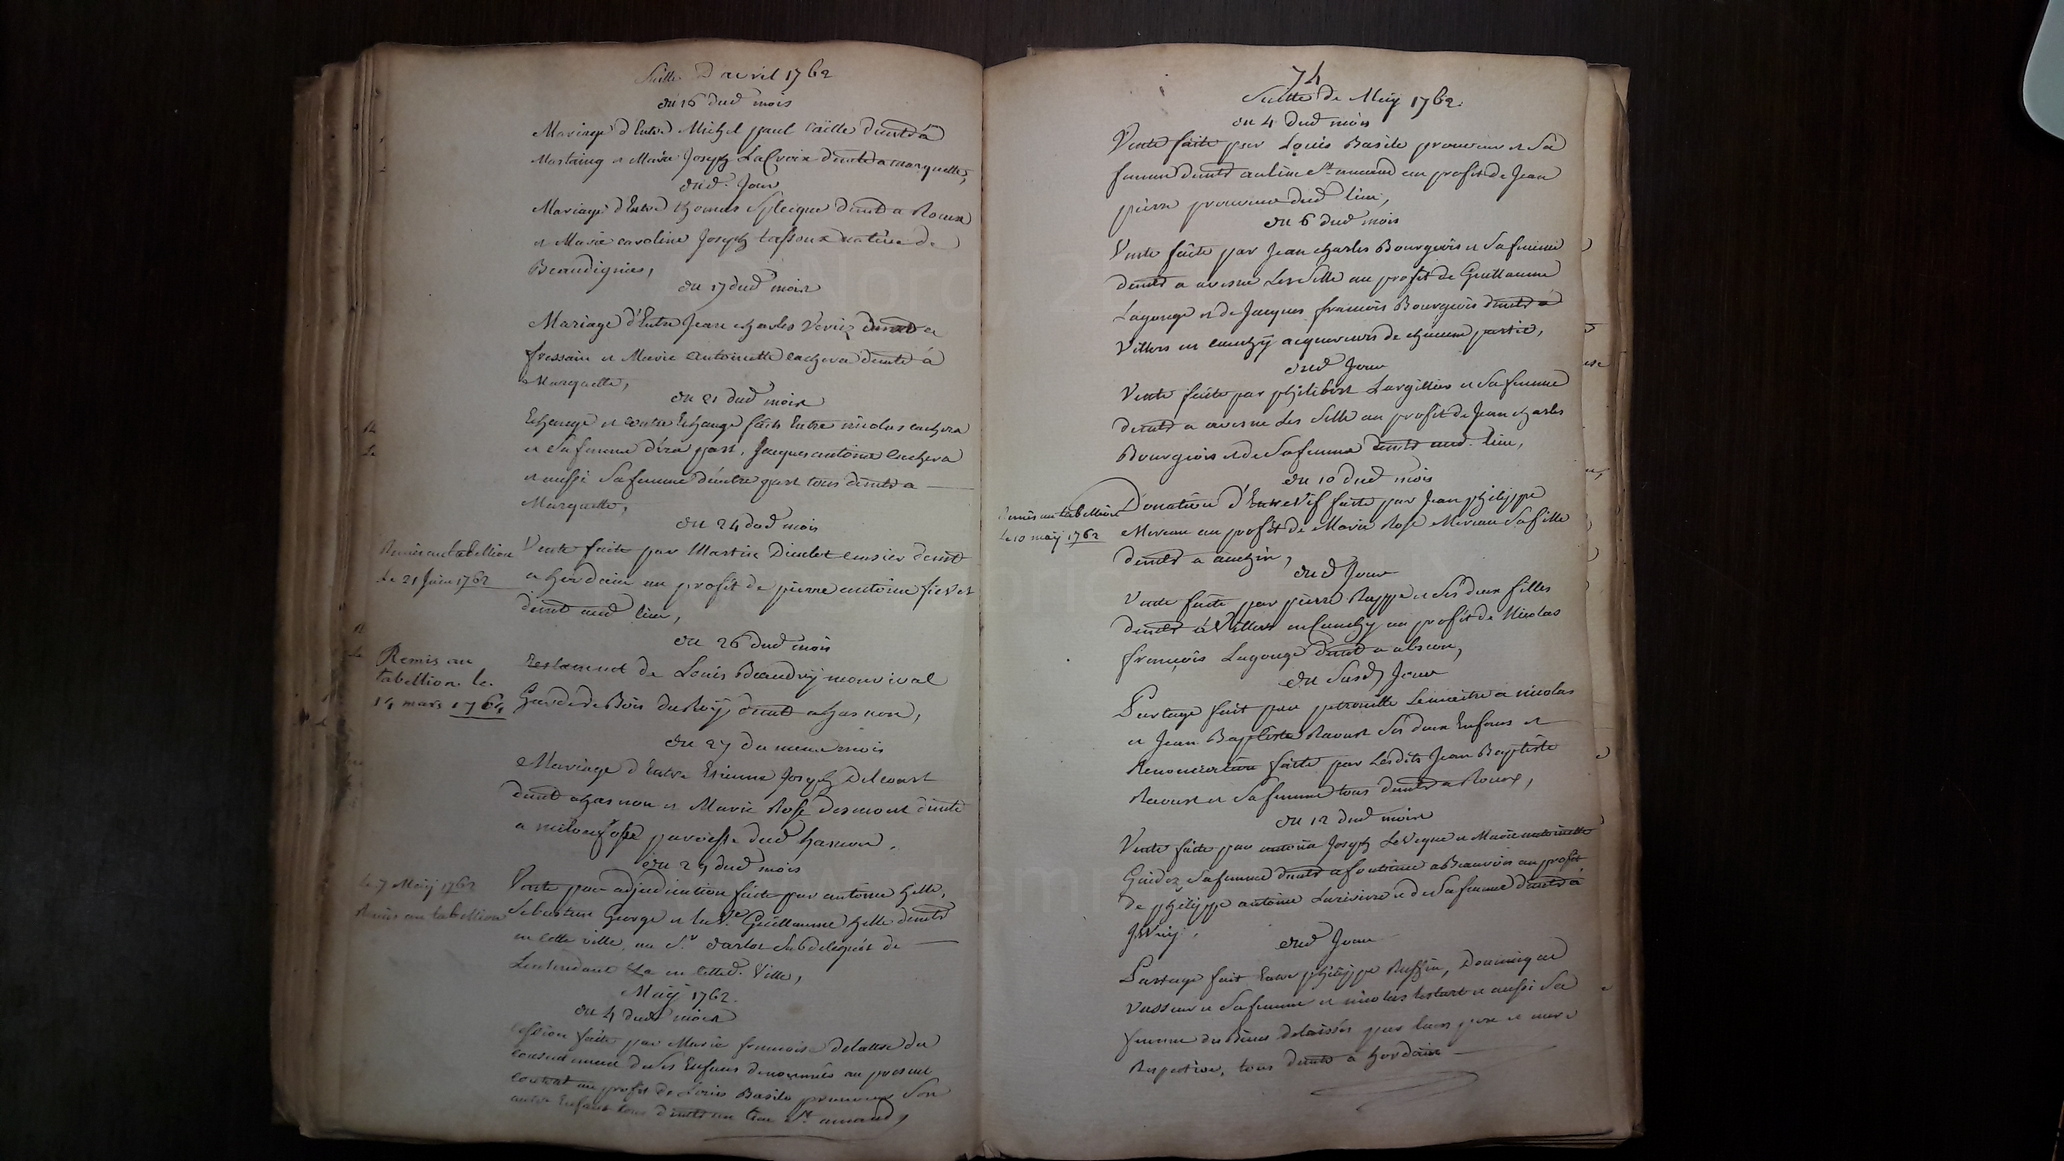 Suitte D'avril 1762
du 16 dud mois
Mariage d'Entre Michel paul Caille demt à
Mastaing et Marie Joseph LaCroix demte a marquette,
dud. Jour
Mariage d'Entre thomas demt a Roeux
et Marie caroline Joseph native de
Beaudignies,
du 17 dud mois
Mariage d'Entre Jean charles demt a
fressain et Marie Antoinette cachera demte à
Marquette,
du 21 dud mois
Echange et contre Echange fait Entre nicolas cachera
et sa femme d'un part, Jacques antoine Cachera
et aussi sa femme d'autre part tous demts a
Marquette,
du 24 dud mois
Remis au tabellion
le 21 Juin 1762
Vente faite par Martin censier demt
a hordain au profit de pierre antoine fievet
demt aud lieu,
du 26 dud mois
Remis au
tabellion le
14 mars 1764
testament de Louis Beaudry monvival
Garde de Bois du Roÿ demt a hasnon,
du 27 du meme mois
Mariage d'Entre Etienne Joseph Delcourt
demt a hasnon et Marie Rose Desmont demte
a paroisse dud hasnon.
du 29 dud mois
le 7 Maÿ 1762
Remis au tabellion
Vente par adjudication faite par antoine helle,
Sebastien George et la Ve Guillaume helle demts
en cette ville, au Sr Darlot Subdelegué de
Lintendant en cetted. Ville,
Maÿ 1762.
du 4 dud mois
Cession faite par Marie francoise delattre du
consentement de ses Enfans denommés au present
contrat au profit de Louis Basile son
autre Enfant tous demts au lieu St amand,
74
Suitte de Maÿ 1762.
du 4 dud mois
Vente faite par Louis Basile et Sa
femme demts au lieu St amand au profit de Jean
pierre dud lieu,
du 6 dud mois
Vente faite par Jean charles Bourgeois et Sa femme
demts a avesne Le Selle au profit de Guillaume
Lagouge et de Jacques francois Bourgeois demts à
Villers en Cauchÿ acquereurs de chacune partie,
dud Jour
Vente faite par philibert Largillier et Sa femme
demts a avesne Les Selle au profit de Jean charles
Bourgeois et de Sa femme demts aud. lieu,
du 10 dud mois
Remis au tabellion
le 10 maÿ 1762
Donation d'Entrevif faite par Jean philippe
Mereau au profit de Marie Rose Mereau Sa fille
demts a anzin,
dud Jour
Vente faite par pierre Rappe et Ses deux filles
demts à Villers en Cauchy au profit de Nicolas
françois Lagouge demt a abscon,
du Susd Jour
Partage fait par petronille Lemaitre a nicolas
et Jean Baptiste Ravart Ses deux Enfans et
Renonciation faite par Lesdits Jean Baptiste
Ravart et Sa femme tous demts a Roeux,
du 12 dud mois
Vente faite par antoine Joseph LeVeque et Marie antoinette
Guidez Sa femme demts a fontaine a Beauvois au profit
de philippe antoine Lariviere et de Sa femme demts à
dud Jour
Partage fait Entre philippe Ruffin, Dominique
Vasseur et Sa femme et nicolas testart et aussi Sa
femme des Biens delaissés par leurs pere et mere
Respective, tous demts a hordain